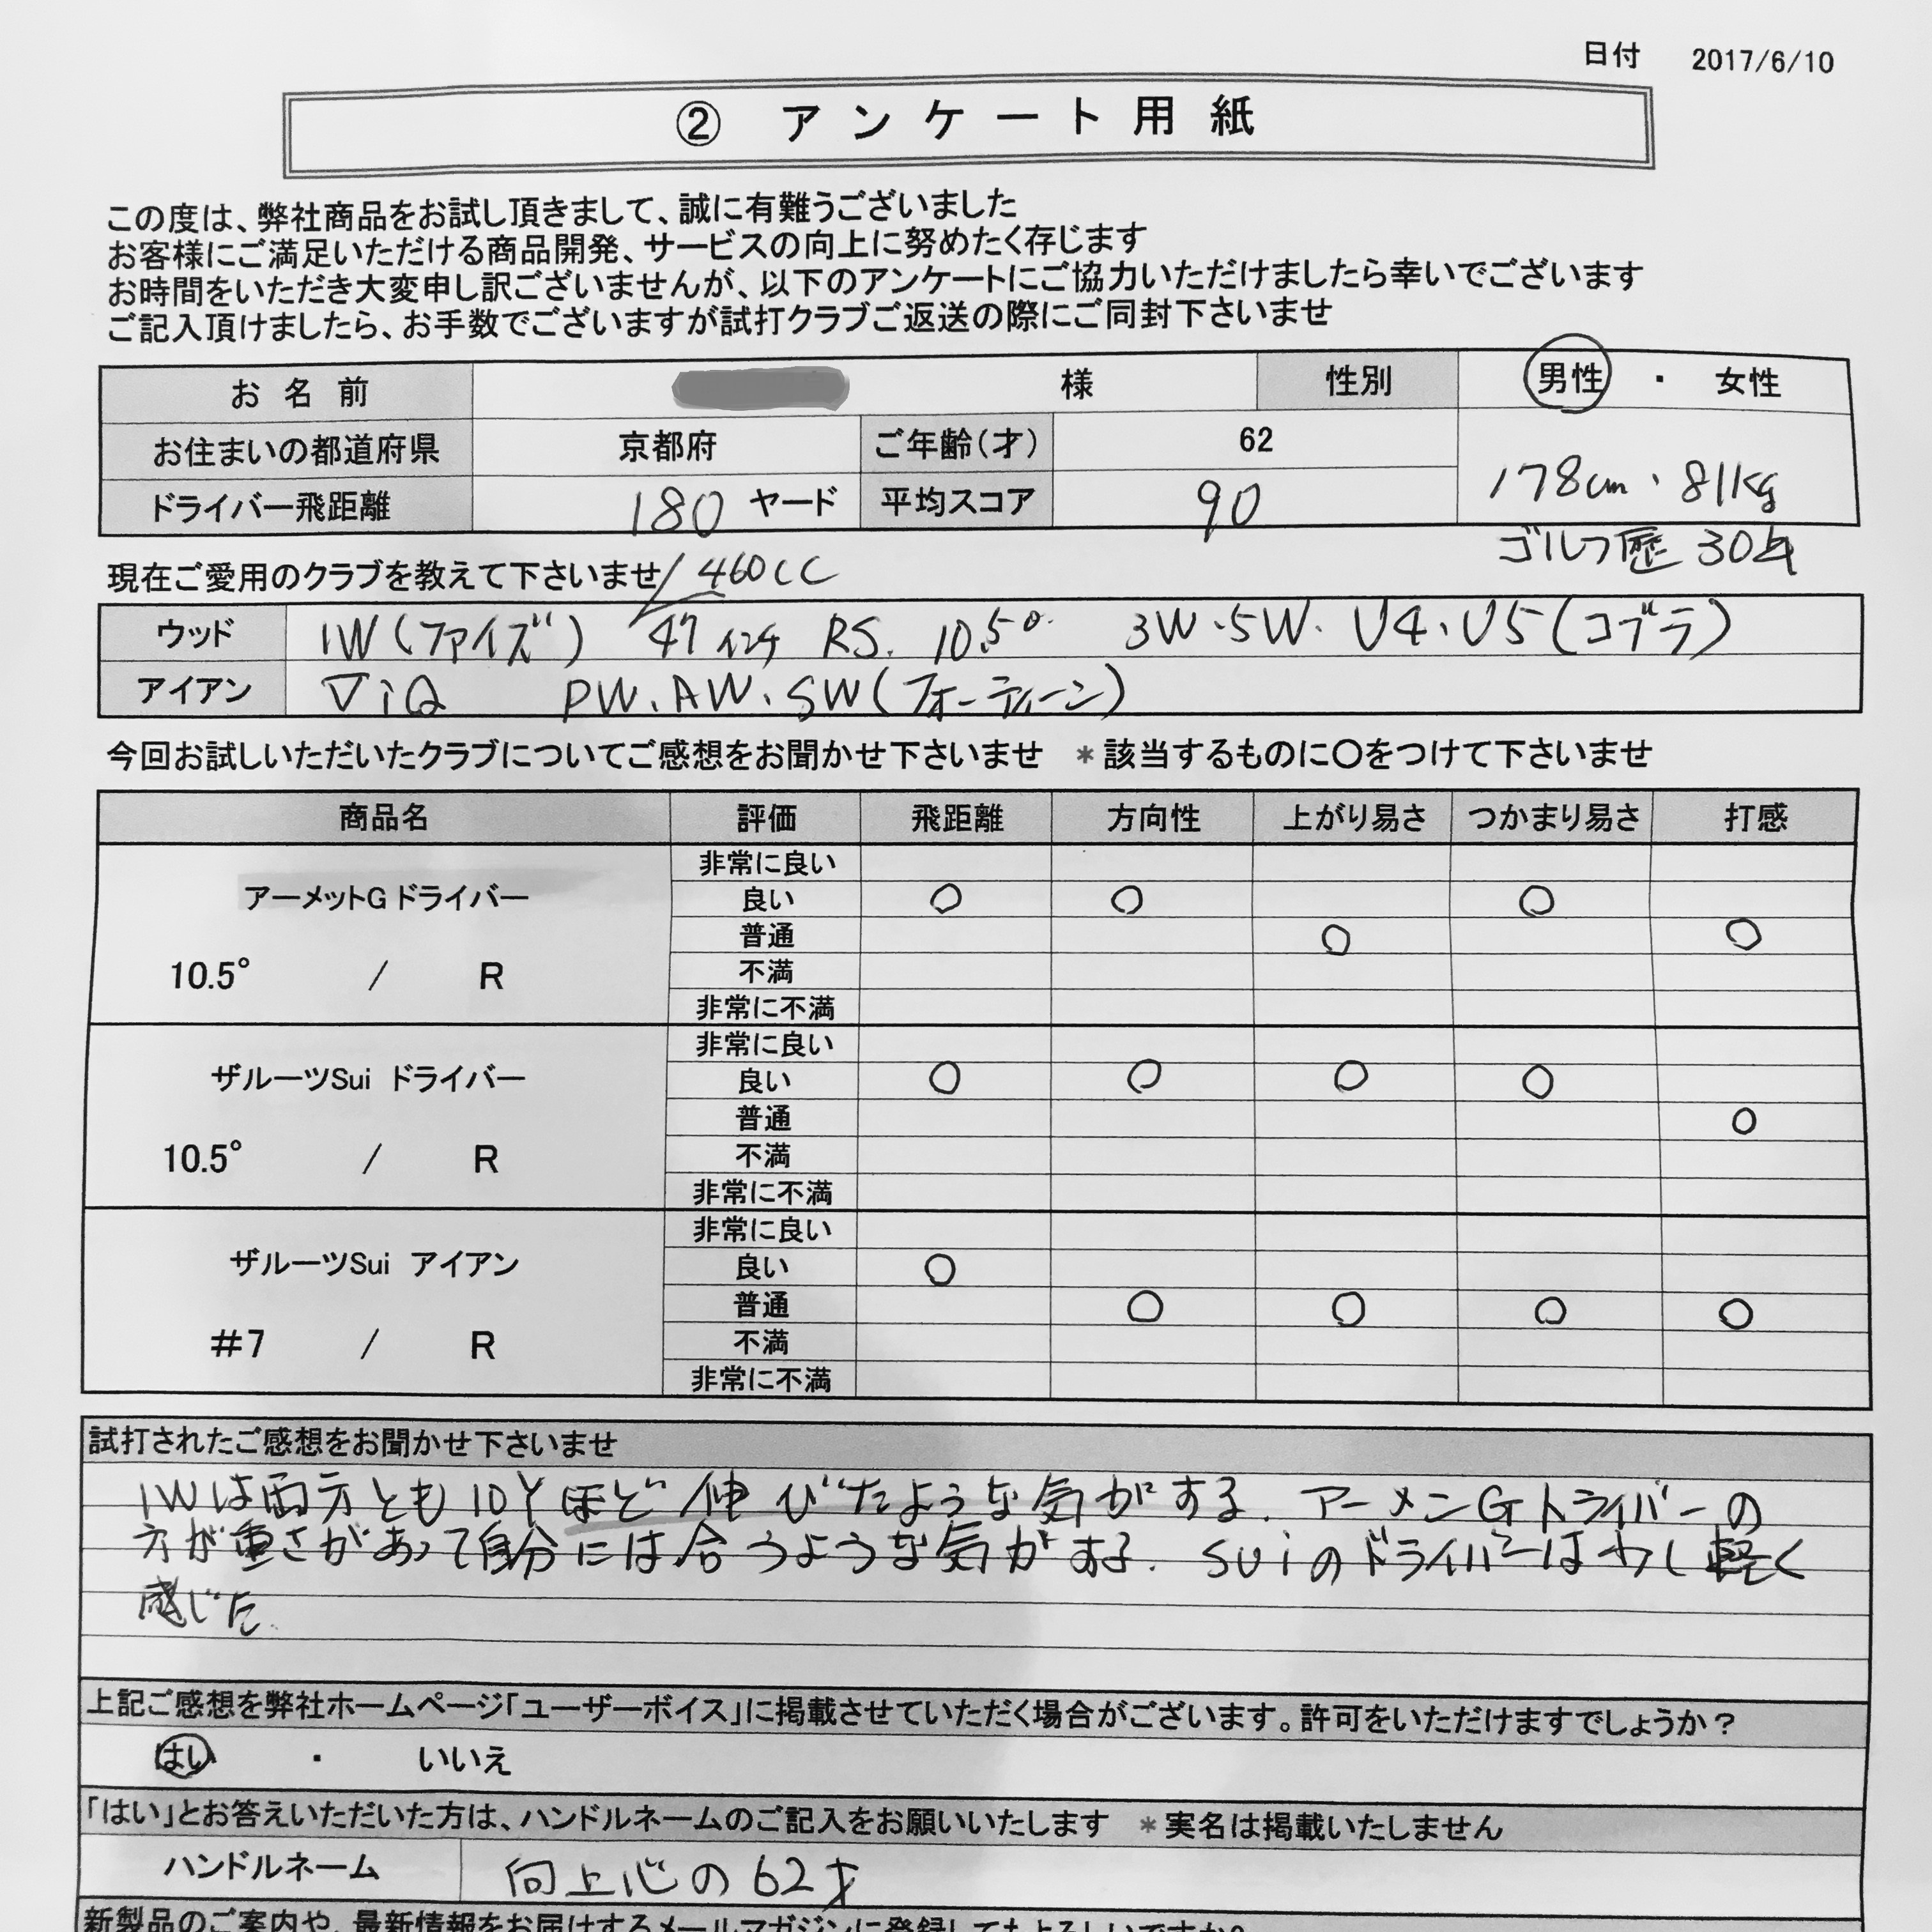 日付 2017/6/10
② アンケート用紙
この度は、弊社商品をお試し頂きまして、誠に有難うございました
お客様にご満足いただける商品開発、サービスの向上に努めたく存じます
お時間をいただき大変申し訳ございませんが、以下のアンケートにご協力いただけましたら幸いでございます
ご記入頂けましたら、お手数でございますが試打クラブご返送の際にご同封下さいませ
お名前 様 性別 男性 ・ 女性
お住まいの都道府県 京都府 ご年齢(才) 62
178cm・81kg
ドライバー飛距離 180 ヤード 平均スコア 90
ゴルフ歴 30年
現在ご愛用のクラブを教えて下さいませ 460cc
ウッド 1W(ファイズ) 47インチ RS. 10.5° 3W・5W・U4・U5(コブラ)
アイアン ViQ PW、AW、SW(フォーティーン)
今回お試しいただいたクラブについてご感想をお聞かせ下さいませ *該当するものに〇をつけて下さいませ
商品名 評価 飛距離 方向性 上がり易さ つかまり易さ 打感
非常に良い
アーメットG ドライバー 良い 〇 〇 〇
普通 〇 〇
10.5° / R 不満
非常に不満
非常に良い
ザルーツSui ドライバー 良い 〇 〇 〇 〇
普通 〇
10.5° / R 不満
非常に不満
非常に良い
ザルーツSui アイアン 良い 〇
普通 〇 〇 〇 〇
#7 / R 不満
非常に不満
試打されたご感想をお聞かせ下さいませ
1Wは両方とも10Yほど伸びたような気がする。アーメンGドライバーの
方が重さがあって自分には合うような気がする。suiのドライバーは少し軽く
感じた。
上記ご感想を弊社ホームページ「ユーザーボイス」に掲載させていただく場合がございます。許可をいただけますでしょうか？
はい ・ いいえ
「はい」とお答えいただいた方は、ハンドルネームのご記入をお願いいたします *実名は掲載いたしません
ハンドルネーム 向上心の62才
新製品のご案内や、最新情報をお届けするメールマガジンに登録してもよろしいですか?